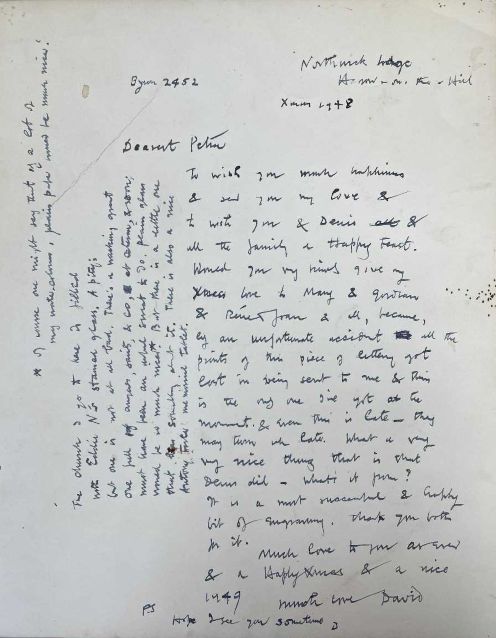 Northwick Lodge
Harrow-on-the-Hill
Byron 2452
Xmas 1948
Dearest Petra
To wish you much happiness
& send you my love &
to wish you & Denis &
all the family a Happy Feast.
Would you very kindly give my
Xmas love to Mary & Gordian
& René & Joan & all, because,
by an unfortunate accident all the
prints of this piece of lettering got
lost in being sent to me & this
is the only one I've got at the
moment. & even this is late – they
may turn up late. What a very
very nice thing that is that
Denis did – what's it from?
It is a most successful & lovely
bit of engraving. Thank you both
for it. Much love to you as ever
& a Happy Xmas & a nice
1949 much love David
PS Hope I see you sometime D
The church I go to here is filled
with Eddie N's stained glass. A pity;
but one is not at all bad. There's a
one full of angels, saints, & Co,
must have been an awful sweat to do. plain glass
would be so much nicer* But there is a little one
that has something about it. There is also a nice
tablet.
* of course one might say that of a lot of
my water-colours, plain paper would be much nicer!